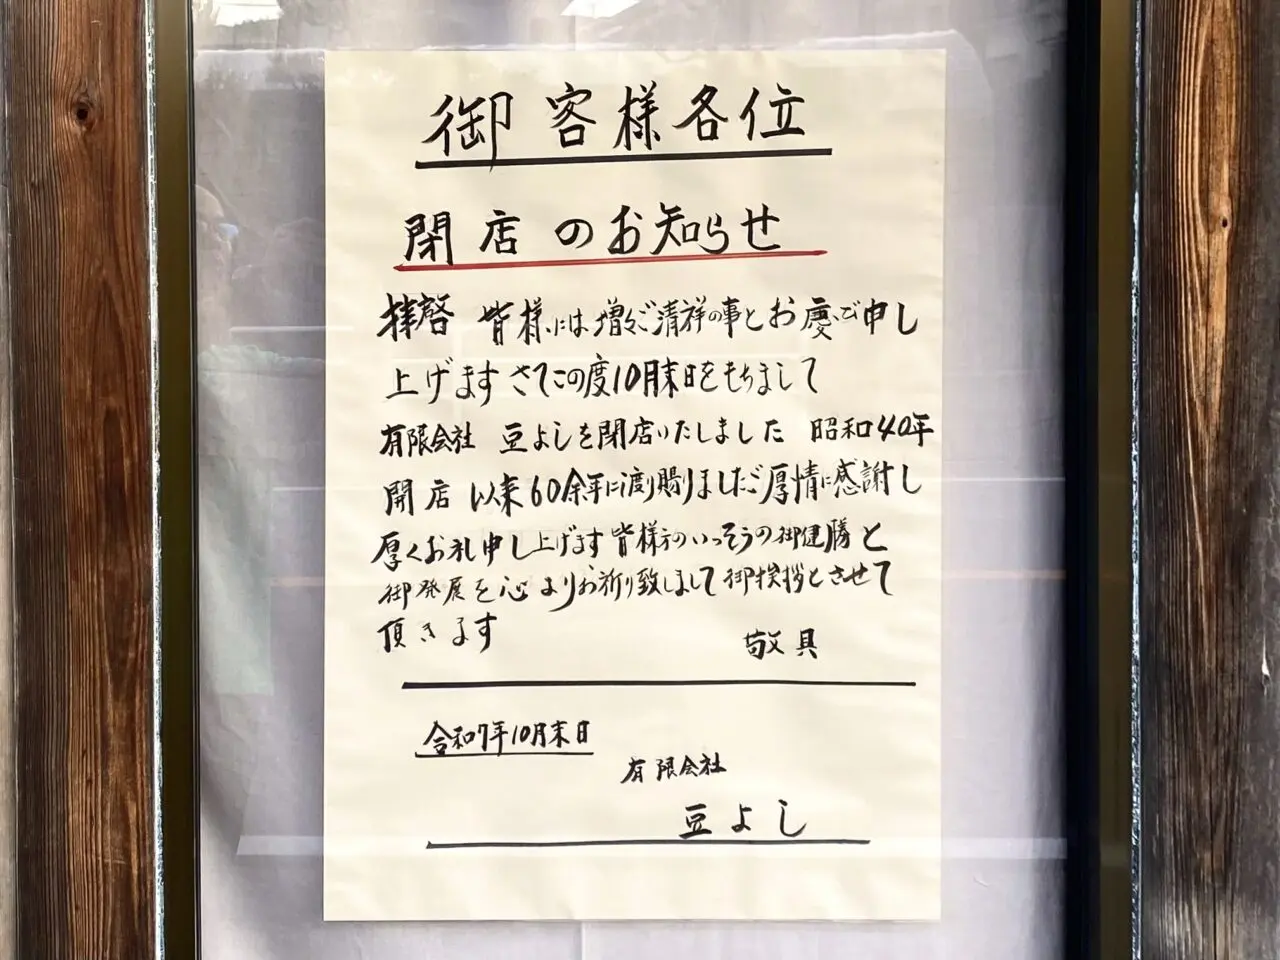 御客様各位
閉店のお知らせ
拝啓 皆様には増々ご清祥の事とお慶び申し
上げます さてこの度10月末日をもちまして
有限会社 豆よしを閉店いたしました 昭和40年
開店以来60余年に渡り賜りましたご厚情に感謝し
厚くお礼申し上げます 皆様方のいっそうの御健勝と
御発展を心よりお祈り致しまして御挨拶とさせて
頂きます 敬具
令和7年10月末日
有限会社
豆よし